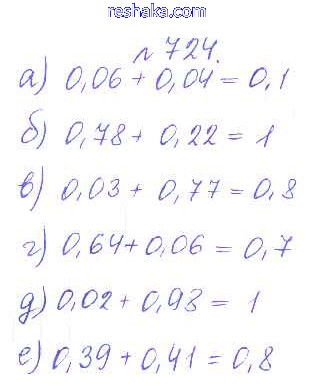 reshaka.com
№ 724.
а) 0,06 + 0,04 = 0,1
б) 0,78 + 0,22 = 1
в) 0,03 + 0,77 = 0,8
г) 0,64 + 0,06 = 0,7
д) 0,02 + 0,98 = 1
е) 0,39 + 0,41 = 0,8